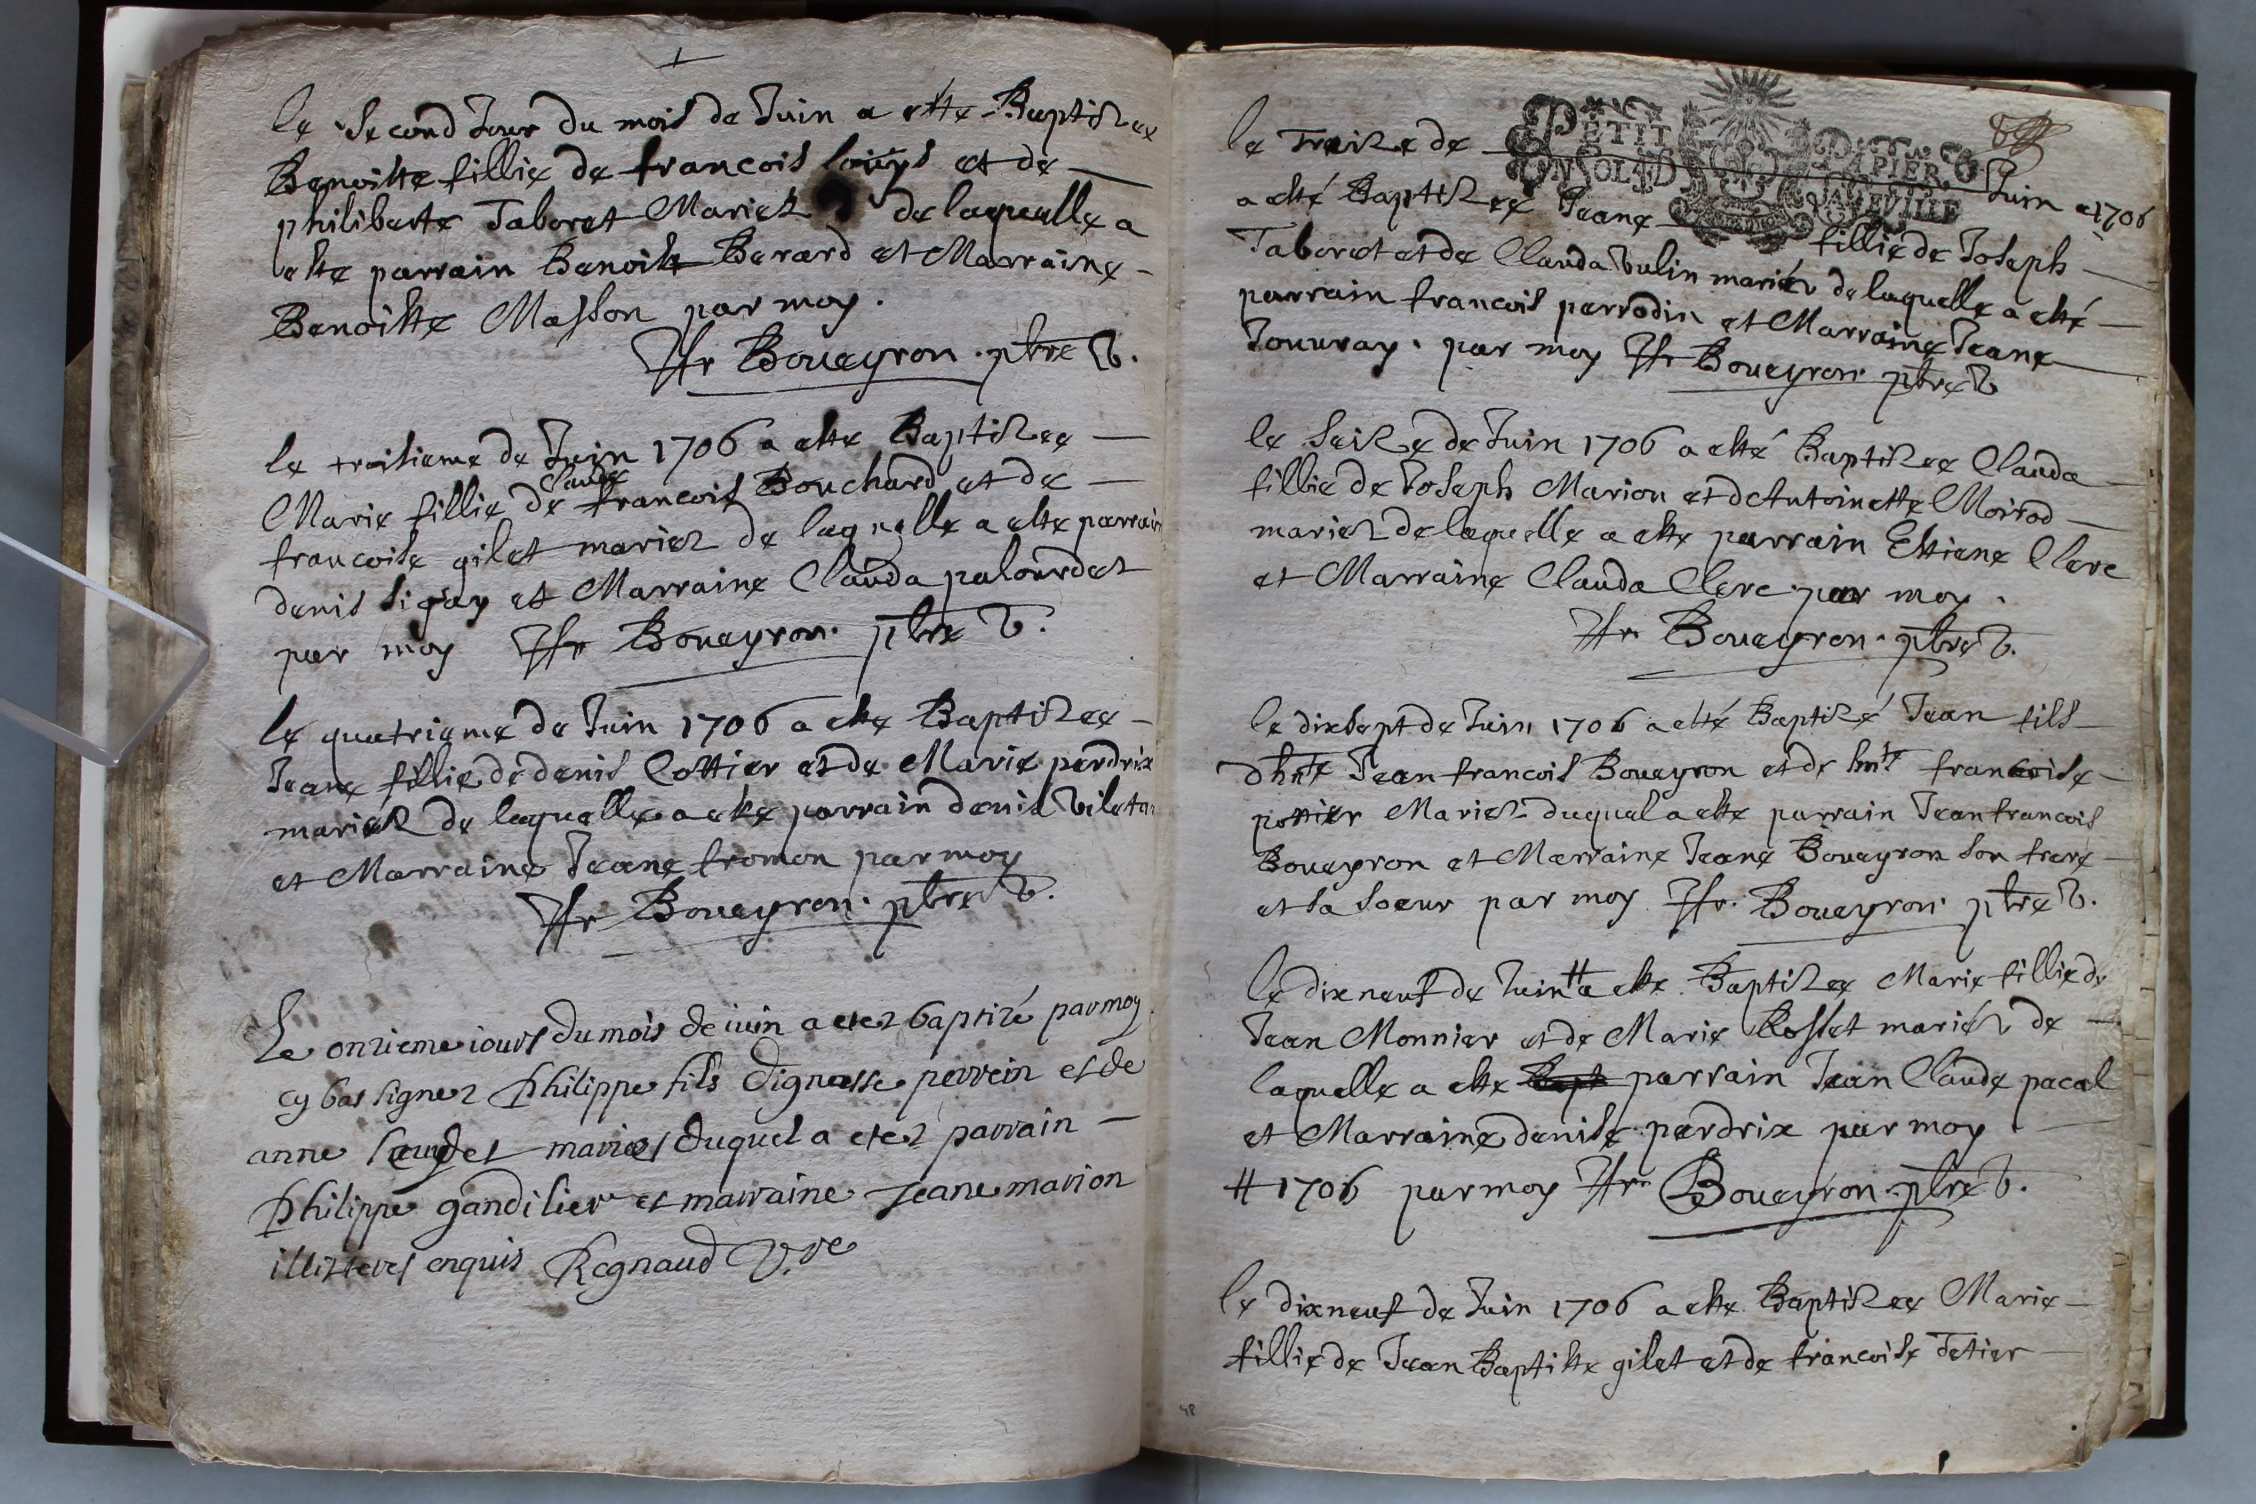 le second Jour du mois de Juin a este Baptizee
Benoiste fillie de francois louys et de
philiberte Taboret Mariez de laquelle a
este parrain Benoist Berard et Marraine
Benoiste Masson par moy.
Boueyron. ptre V.
le troisieme de Juin 1706 a este Baptizee
Claude
Marie fillie de francois Bouchard et de
francoise gilet mariez de laquelle a este parrain
denis sigay et Marraine Clauda palourdet
par moy Boueyron. ptre V.
le quatrieme de Juin 1706 a este Baptizee
Jeane fillie de denis Cottier et de Marie perdrix
mariez de laquelle a este parrain denis
et Marraine Jeane fromon par moy
Boueyron. ptre V.
Le onzieme iours du mois de iuin a etez baptizé par moy
cy bas signez Philippe fils dignasse perrein et de
anne mariez duquel a etez parrain
Philippe gandilier et marraine Jeane marion
illitteres enquis Regnaud V.re
PETIT PAPIER
UN SOL JA FEUILLE
le Treize de Juin 1706
a esté Baptizeé Jeane fillie de Joseph
Taboret et de Clauda Vulin mariéz de laquelle a esté
parrain francois perrodin et Marraine Jeane
Jouuray. par moy Boueyron. ptre V
le seize de Juin 1706 a esté Baptizee Clauda
fillie de Joseph Marion et dAntoinette Moirod
mariez de laquelle a este parrain Estiene Clerc
et Marraine Clauda Clerc. par moy.
Boueyron. ptre V.
le dixsept de Juin 1706 a esté Baptizé Jean fils
dhnte Jean francois Boueyron et de hnte francoise
pottier Mariez duquel a este parrain Jean francois
Boueyron et Marraine Jeane Boueyron son frere
et sa soeur par moy Boueyron. ptre V.
le dixneuf de Juin # a este Baptizee Marie fillie de
Jean Monnier et de Marie Rosset mariéz de
laquelle a este bapt parrain Jean Claude pacal
et Marraine denise perdrix par moy
# 1706 par moy Boueyron. ptre V.
le dixneuf de Juin 1706 a este Baptizee Marie
fillie de Jean Baptiste gilet et de francoise Tetier